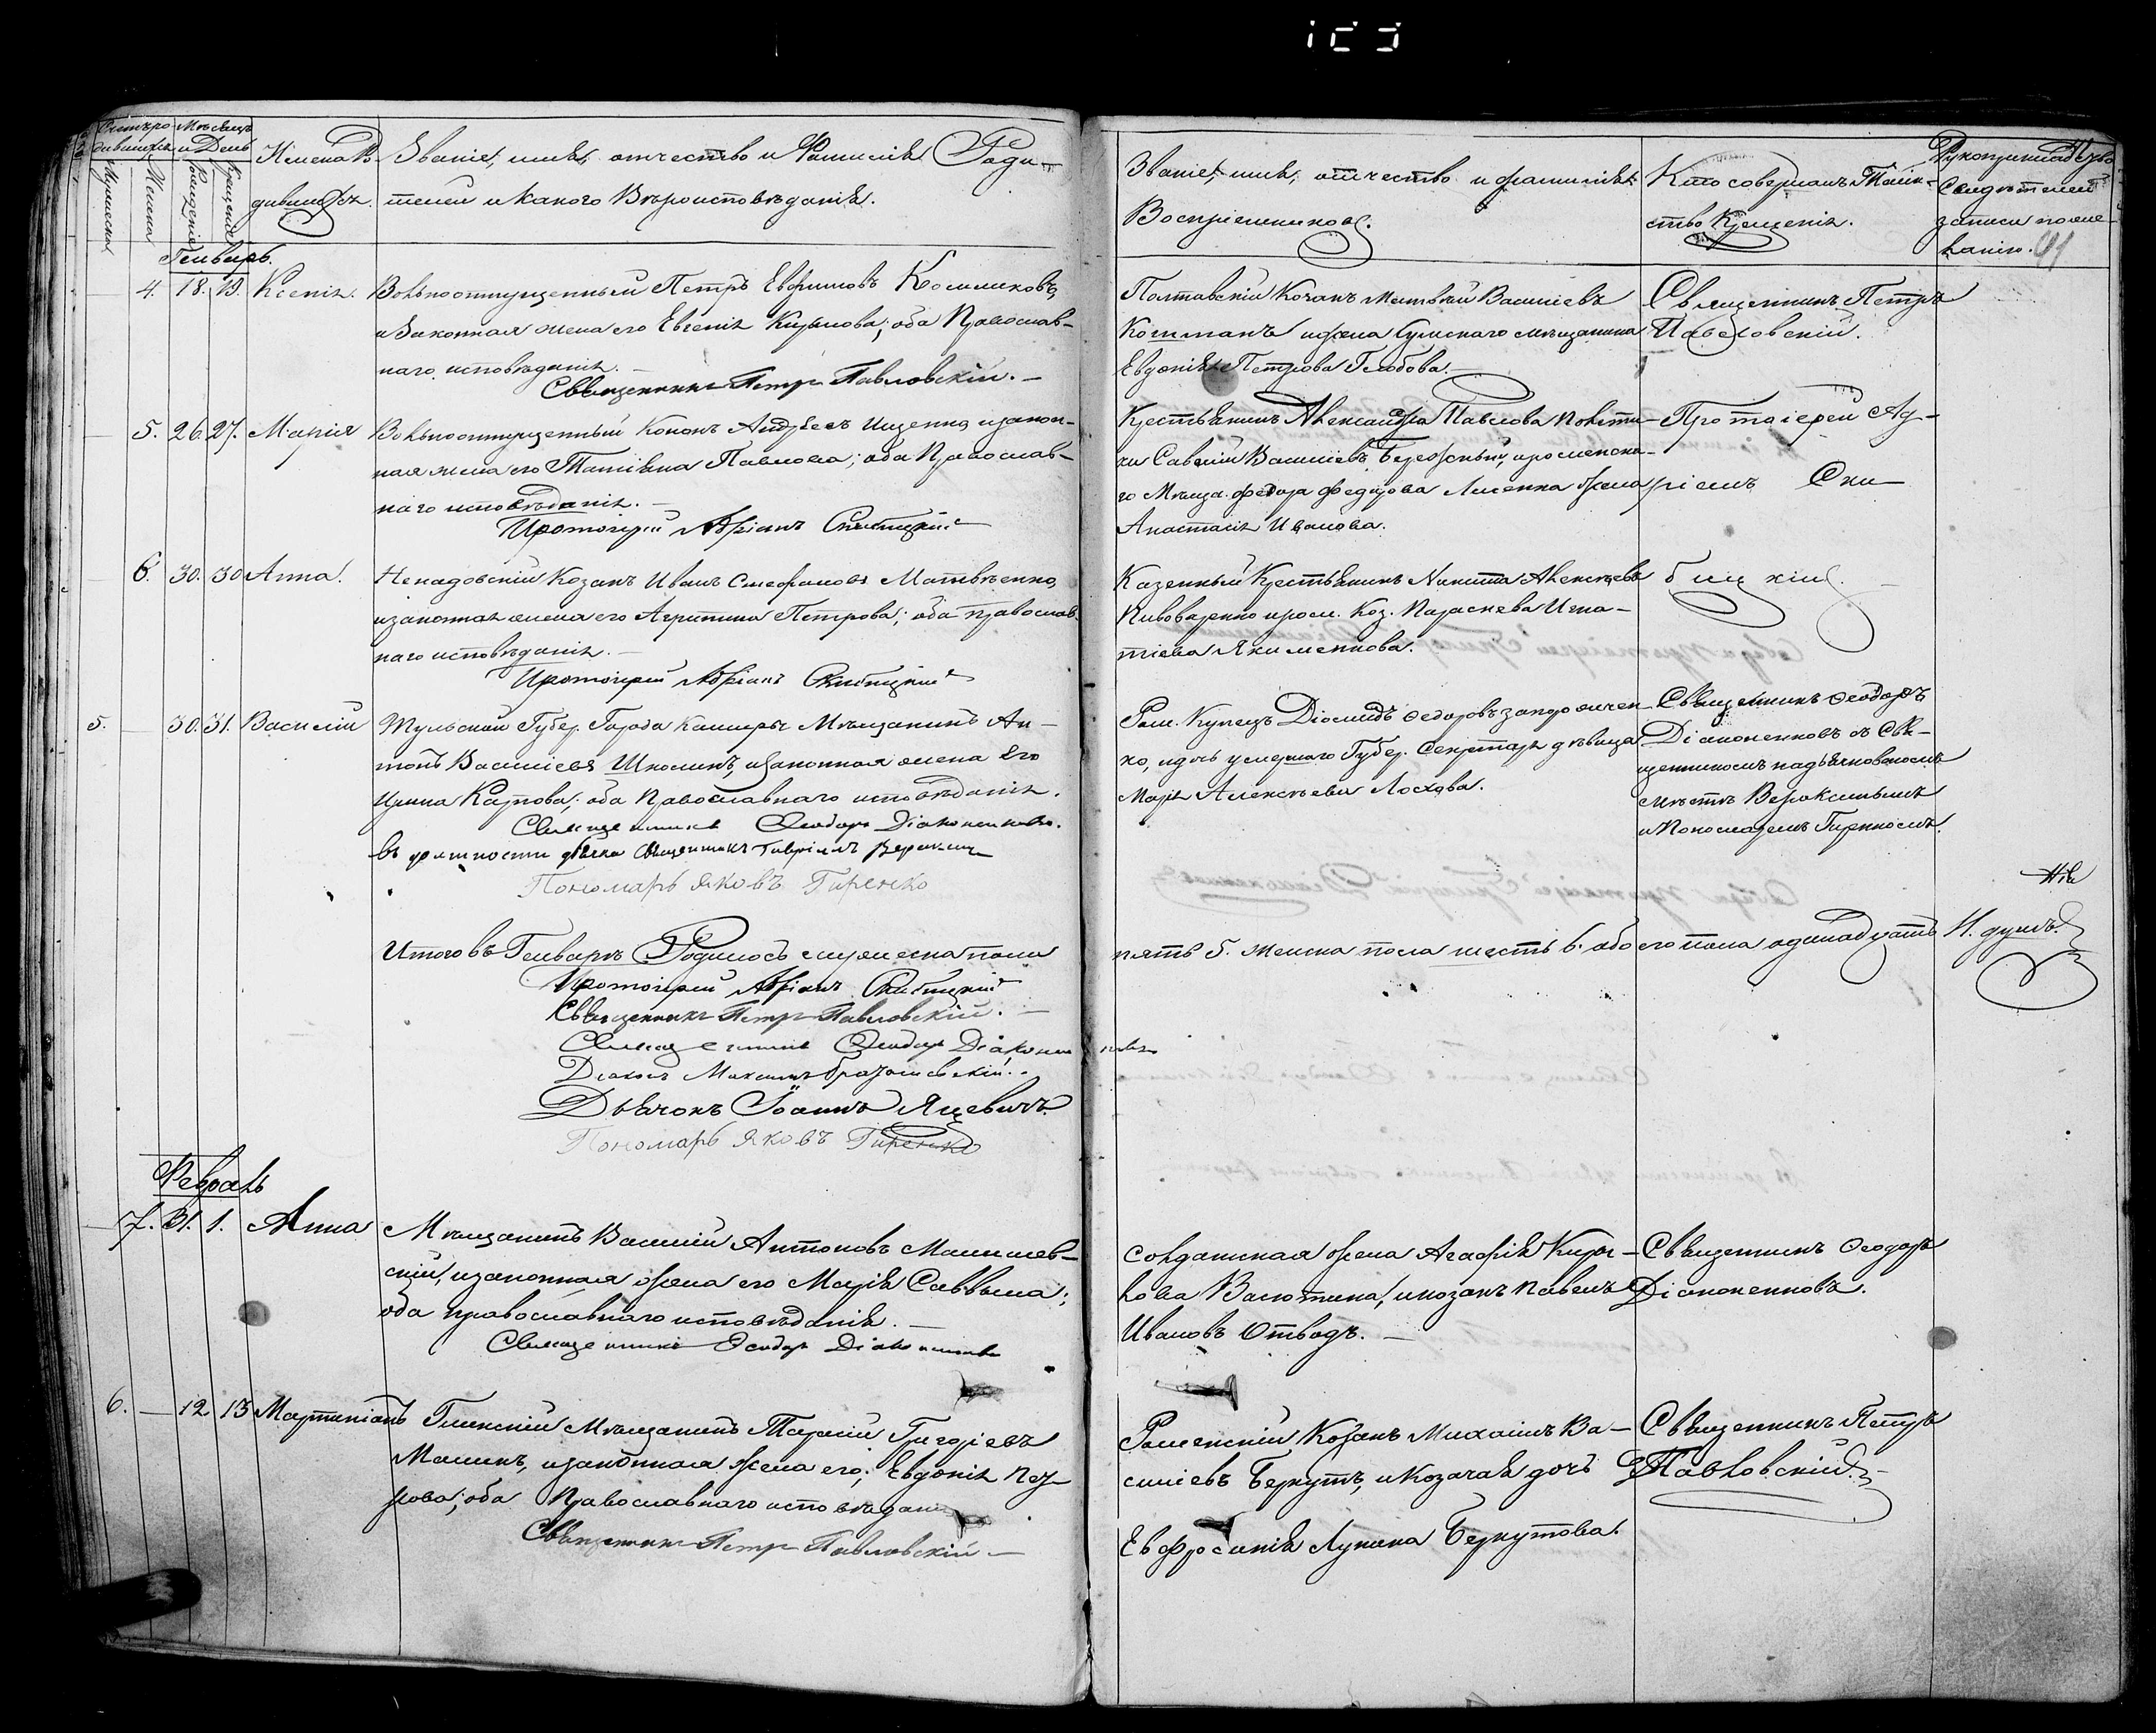 Счетъ ро-
дившихся
Мѣсяцъ
и День
Мужеска
Женска
Рожденія
Крещенія
Имена Ро-
дившихся.
Званіе, имя, отчество и Фамилія Роди-
телей и какого Вѣроисповѣданія.
Званіе, имя, отчество и фамилія
Воспріемниковъ.
Кто совершалъ Таин-
ство Крещенія.
Рукоприкладство
Свидѣтелей
записи по же-
ланію.
Генварь.
4. 18. 19. Ксенія.
Вольноотпущенный Петръ Ефимовъ
и Законная жена его Евгенія Кирилова; оба Православ-
наго исповѣданія.
Священникъ Петръ Павловскій.
Полтавскій Козакъ Матвѣй Василіевъ
и жена Сумскаго мѣщанина
Евдокія Петрова
Священникъ Петръ
Павловскій.
5. 26. 27. Марія
Вольноотпущенный Кононъ Андреевъ Ищенко и закон-
ная жена его Татіана Павлова; оба Православ-
наго исповѣданія.
Протоіерей Адріанъ Скибицкій
Крестьянинъ Александра Павлова
Савелій Василіевъ Бережный, и роменска-
го Мѣща. Федора Федорова жена
Анастасія Иванова.
Протоіерей Ад-
ріанъ Ски-
6. 30. 30 Анна.
Козакъ Иванъ Стефановъ Матвѣенко,
и законная жена его Агрипина Петрова; оба православ-
наго исповѣданія.
Протоіерей Адріанъ Скибицкій
Казенный Крестьянинъ Никита Алексѣевъ
Пивоваренко и ром. Коз. Параскева Игна-
тіева Якименкова.
бицкій.
5. 30. 31. Василій
Тульской Губер. Города Каширы Мѣщанинъ Ан-
тонъ Василіевъ Школинъ, и законная жена Его
Ирина Карпова; оба Православнаго исповѣданія.
Священникъ Ѳеодоръ Діаконенковъ.
въ должности дьячка Священникъ Гавріилъ
Пономарь Яковъ Гиренко
Ром. Купецъ Діомидъ Ѳедоровъ
ко, и дочь умершаго Губер. Секретаря дѣвица
Марія Алексѣева
Священникъ Ѳеодоръ
Діаконенковъ съ Свя-
щенникомъ на дьячковскомъ
мѣстѣ
и Пономаремъ Гиренкомъ.
Итого въ Генварѣ Родилось мужеска пола
пять 5. женска пола шесть 6. обоего пола одинадцать
11. душъ.
Протоіерей Адріанъ Скибицкій
Священникъ Петръ Павловскій.
Священникъ Ѳеодоръ Діаконенковъ
Діаконъ Максимъ
Дьячокъ Іоаннъ Яцевичъ
Пономарь Яковъ Гиренко
Февраль
7. 31. 1. Анна
Мѣщанинъ Василій Антоновъ
скій, и законная жена его Марія Саввина;
оба православнаго исповѣданія.
Священникъ Ѳеодоръ Діаконенковъ
Солдатская жена Агафія Кири-
лова Васютина, и козакъ Павелъ
Ивановъ Отводъ.
Священникъ Ѳеодоръ
Діаконенковъ.
6. 12 13 Мартиніанъ
Глинскій Мѣщанинъ Тарасій Григоріевъ
Машинъ, и законная жена его; Евдокія
рова; оба Православнаго исповѣданія
Священникъ Петръ Павловскій
Роменскій Козакъ Михаилъ Ва-
силіевъ Беркутъ, и Козачая дочь
Евфросинія Лукина Беркутова.
Священникъ Петръ
Павловскій.